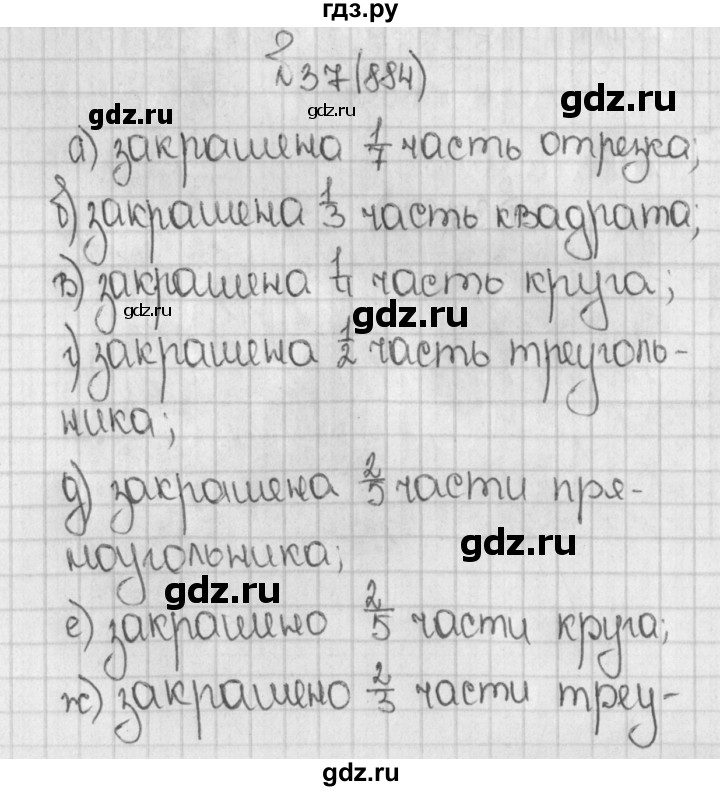 гдз.ру
№37(884)
gdz.ru
gdz.ru
gdz.ru
а) закрашена 1/7 часть отрезка;
б) закрашена 1/3 часть квадрата;
в) закрашена 1/4 часть круга;
gdz.ru
gdz.ru
г) закрашена 1/2 часть треуголь-
ника;
д) закрашена 2/5 части пря-
gdz.ru
моугольника;
gdz.ru
е) закрашено 2/5 части круга;
ж) закрашено 2/3 части треу-
gdz.ru
gdz.ru